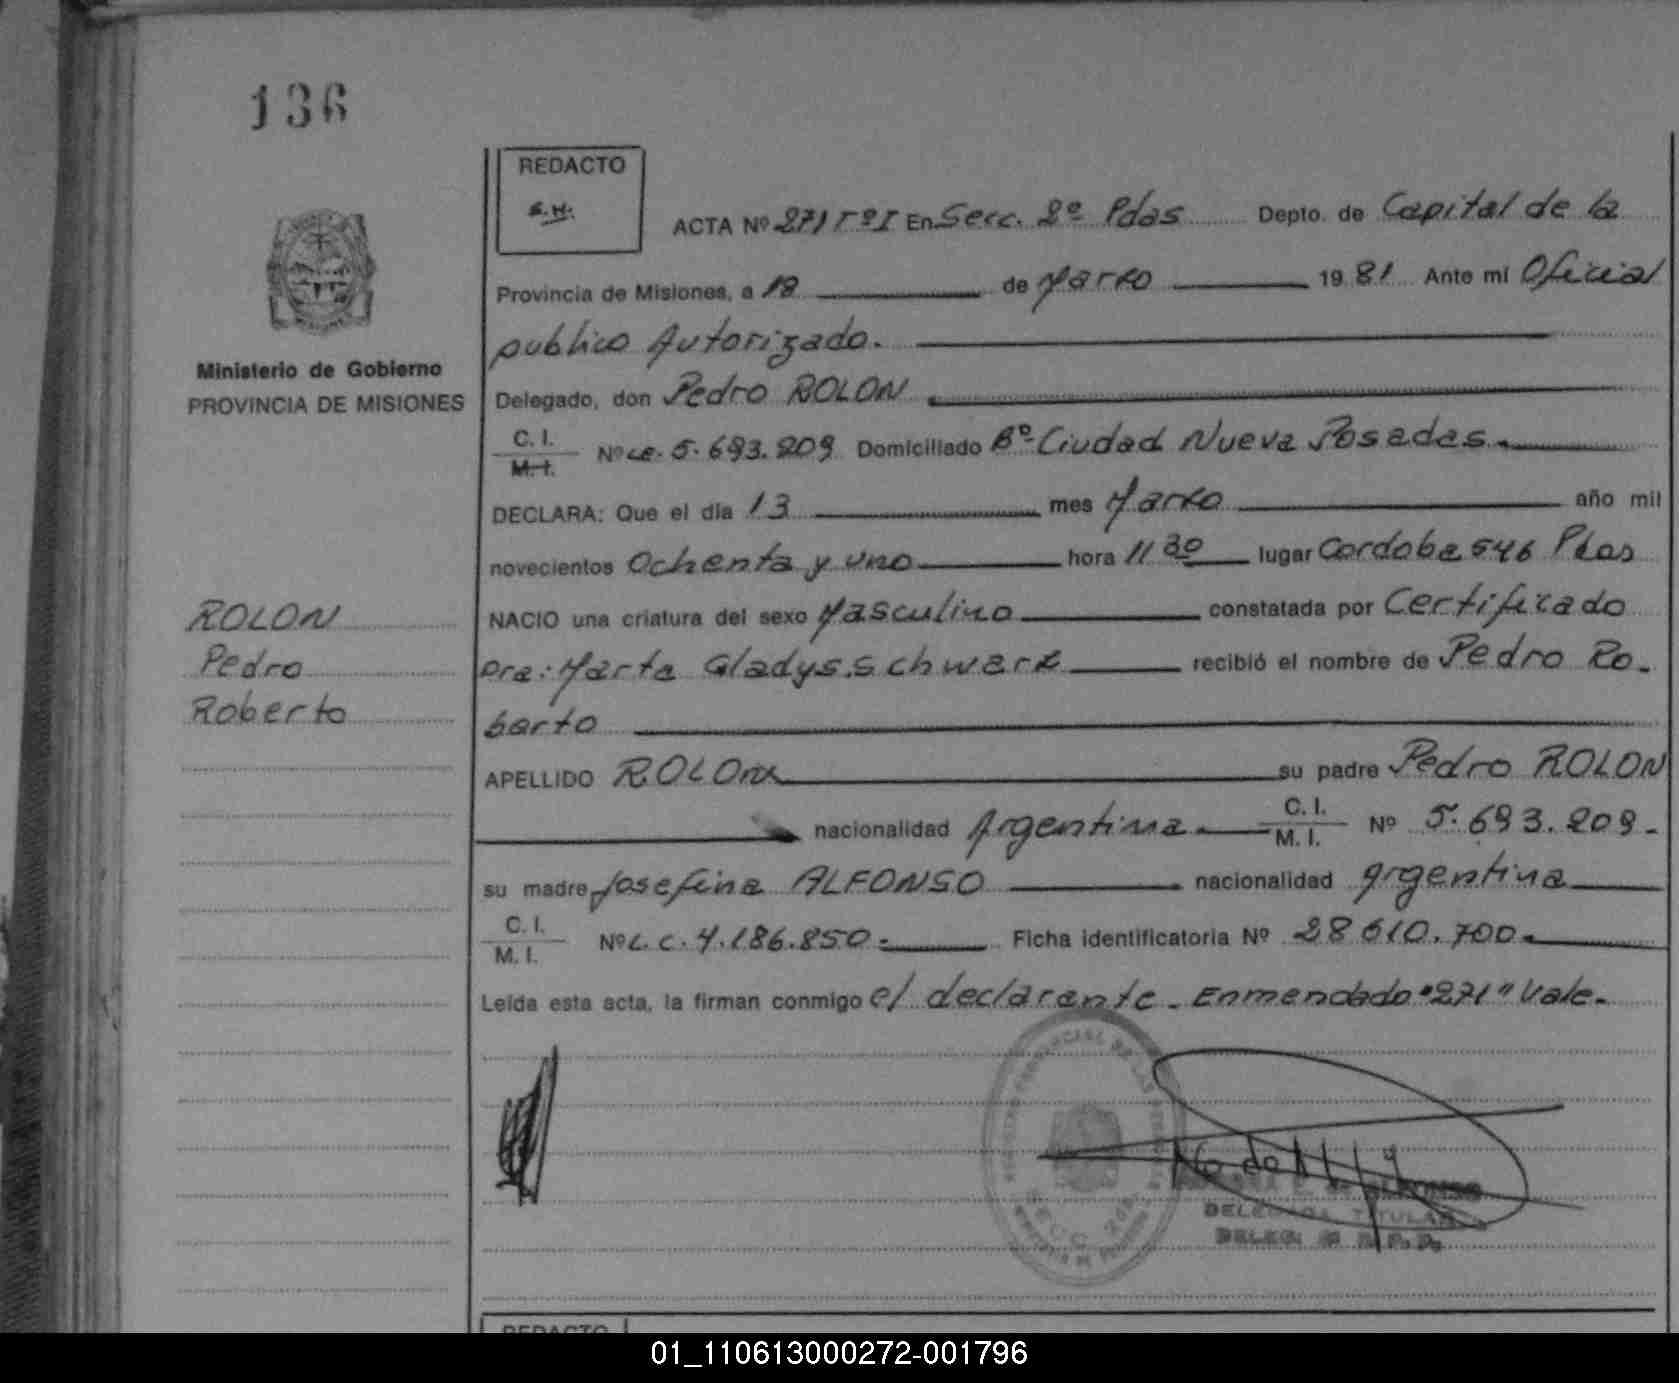 136
REDACTO
S.H.
ACTA Nº 271 Tº I En Secc. 2º Pdas Depto. de Capital de la
Provincia de Misiones, a 18 de Marzo 1981 Ante mi Oficial
publico Autorizado.
Ministerio de Gobierno
PROVINCIA DE MISIONES
Delegado, don Pedro ROLON
C. I.
M. I. Nº LE. 5.693.209 Domiciliado Bº Ciudad Nueva Posadas.
DECLARA: Que el día 13 mes Marzo año mil
novecientos Ochenta y uno hora 11 30 lugar Cordoba 546 Pdas
NACIO una criatura del sexo Masculino constatada por Certificado
Dra: Marta Gladys Schwarz recibió el nombre de Pedro Ro-
berto
ROLON
Pedro
Roberto
APELLIDO ROLON su padre Pedro ROLON
nacionalidad Argentina. C. I.
M. I. Nº 5.693.209.
su madre Josefina ALFONSO nacionalidad Argentina
C. I.
M. I. Nº L.C. 4.186.850. Ficha identificatoria Nº 28.610.700.
Leída esta acta, la firman conmigo el declarante. Enmendado "271" Vale.
SECC. 2da.
DELEGADA TITULAR
REDACTO
01_110613000272-001796